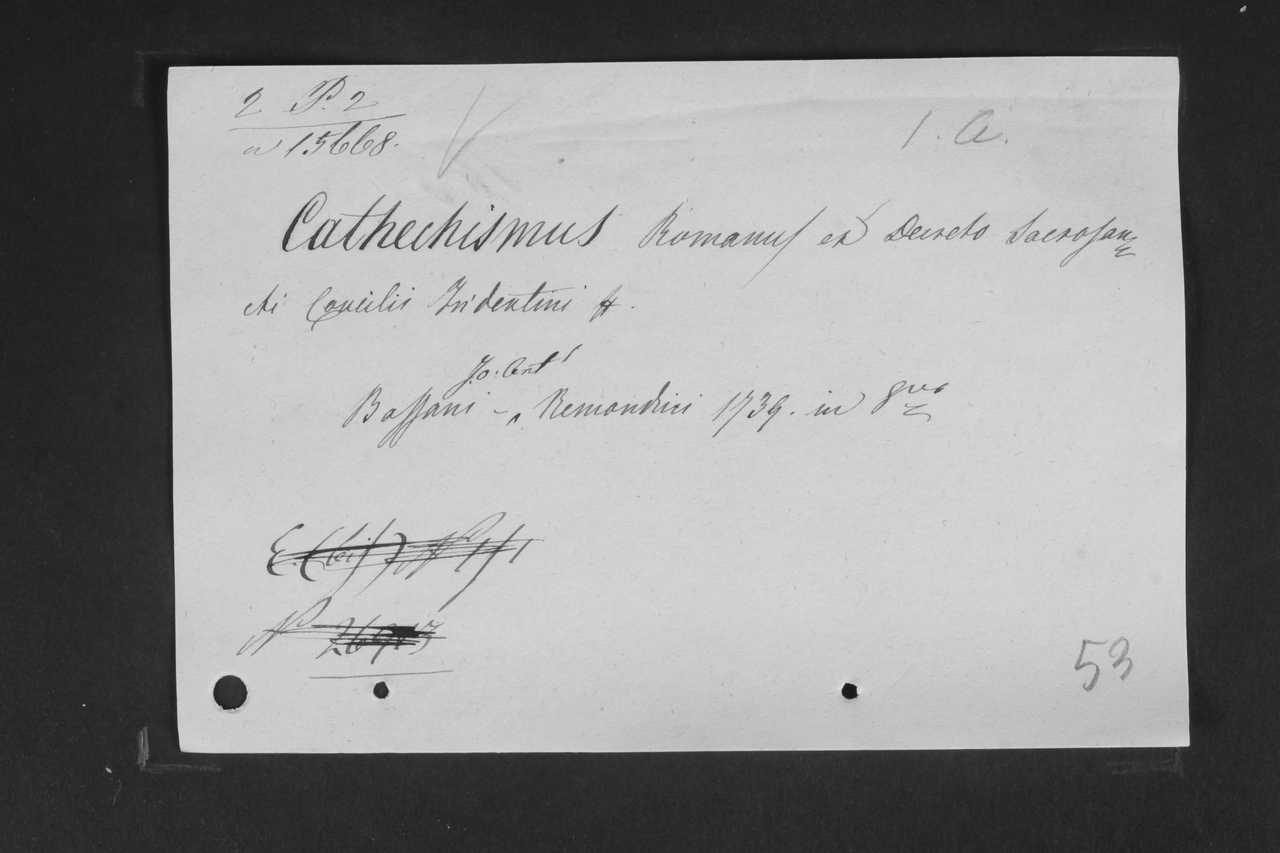 2 P. 2
n 15668.
1. a.
Cathechismus Romanus ex Decreto Sacrosan
cti Concilii Tridentini
Jo: Ant
Bassani - Remondini 1739. in 8vo
53